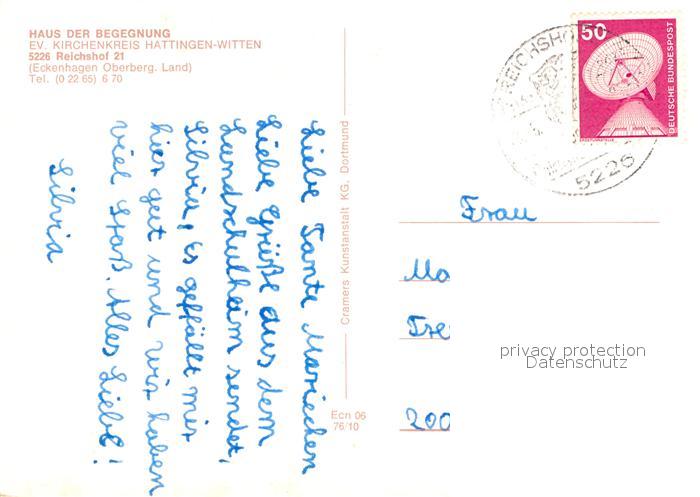 HAUS DER BEGEGNUNG
EV. KIRCHENKREIS HATTINGEN-WITTEN
5226 Reichshof 21
(Eckenhagen Oberberg. Land)
Tel. (0 22 65) 6 70
Liebe Tante Mariechen
Liebe Grüße aus dem
Landschulheim sendet,
Silvia, es gefällt mir
hier gut und wir haben
viel Spaß. Alles Liebe!
Silvia
Cramers Kunstanstalt KG, Dortmund
Ecn 06
76/10
50
DEUTSCHE BUNDESPOST
REICHSHO
5226
Frau
Ma
Tre
200
privacy protection
Datenschutz